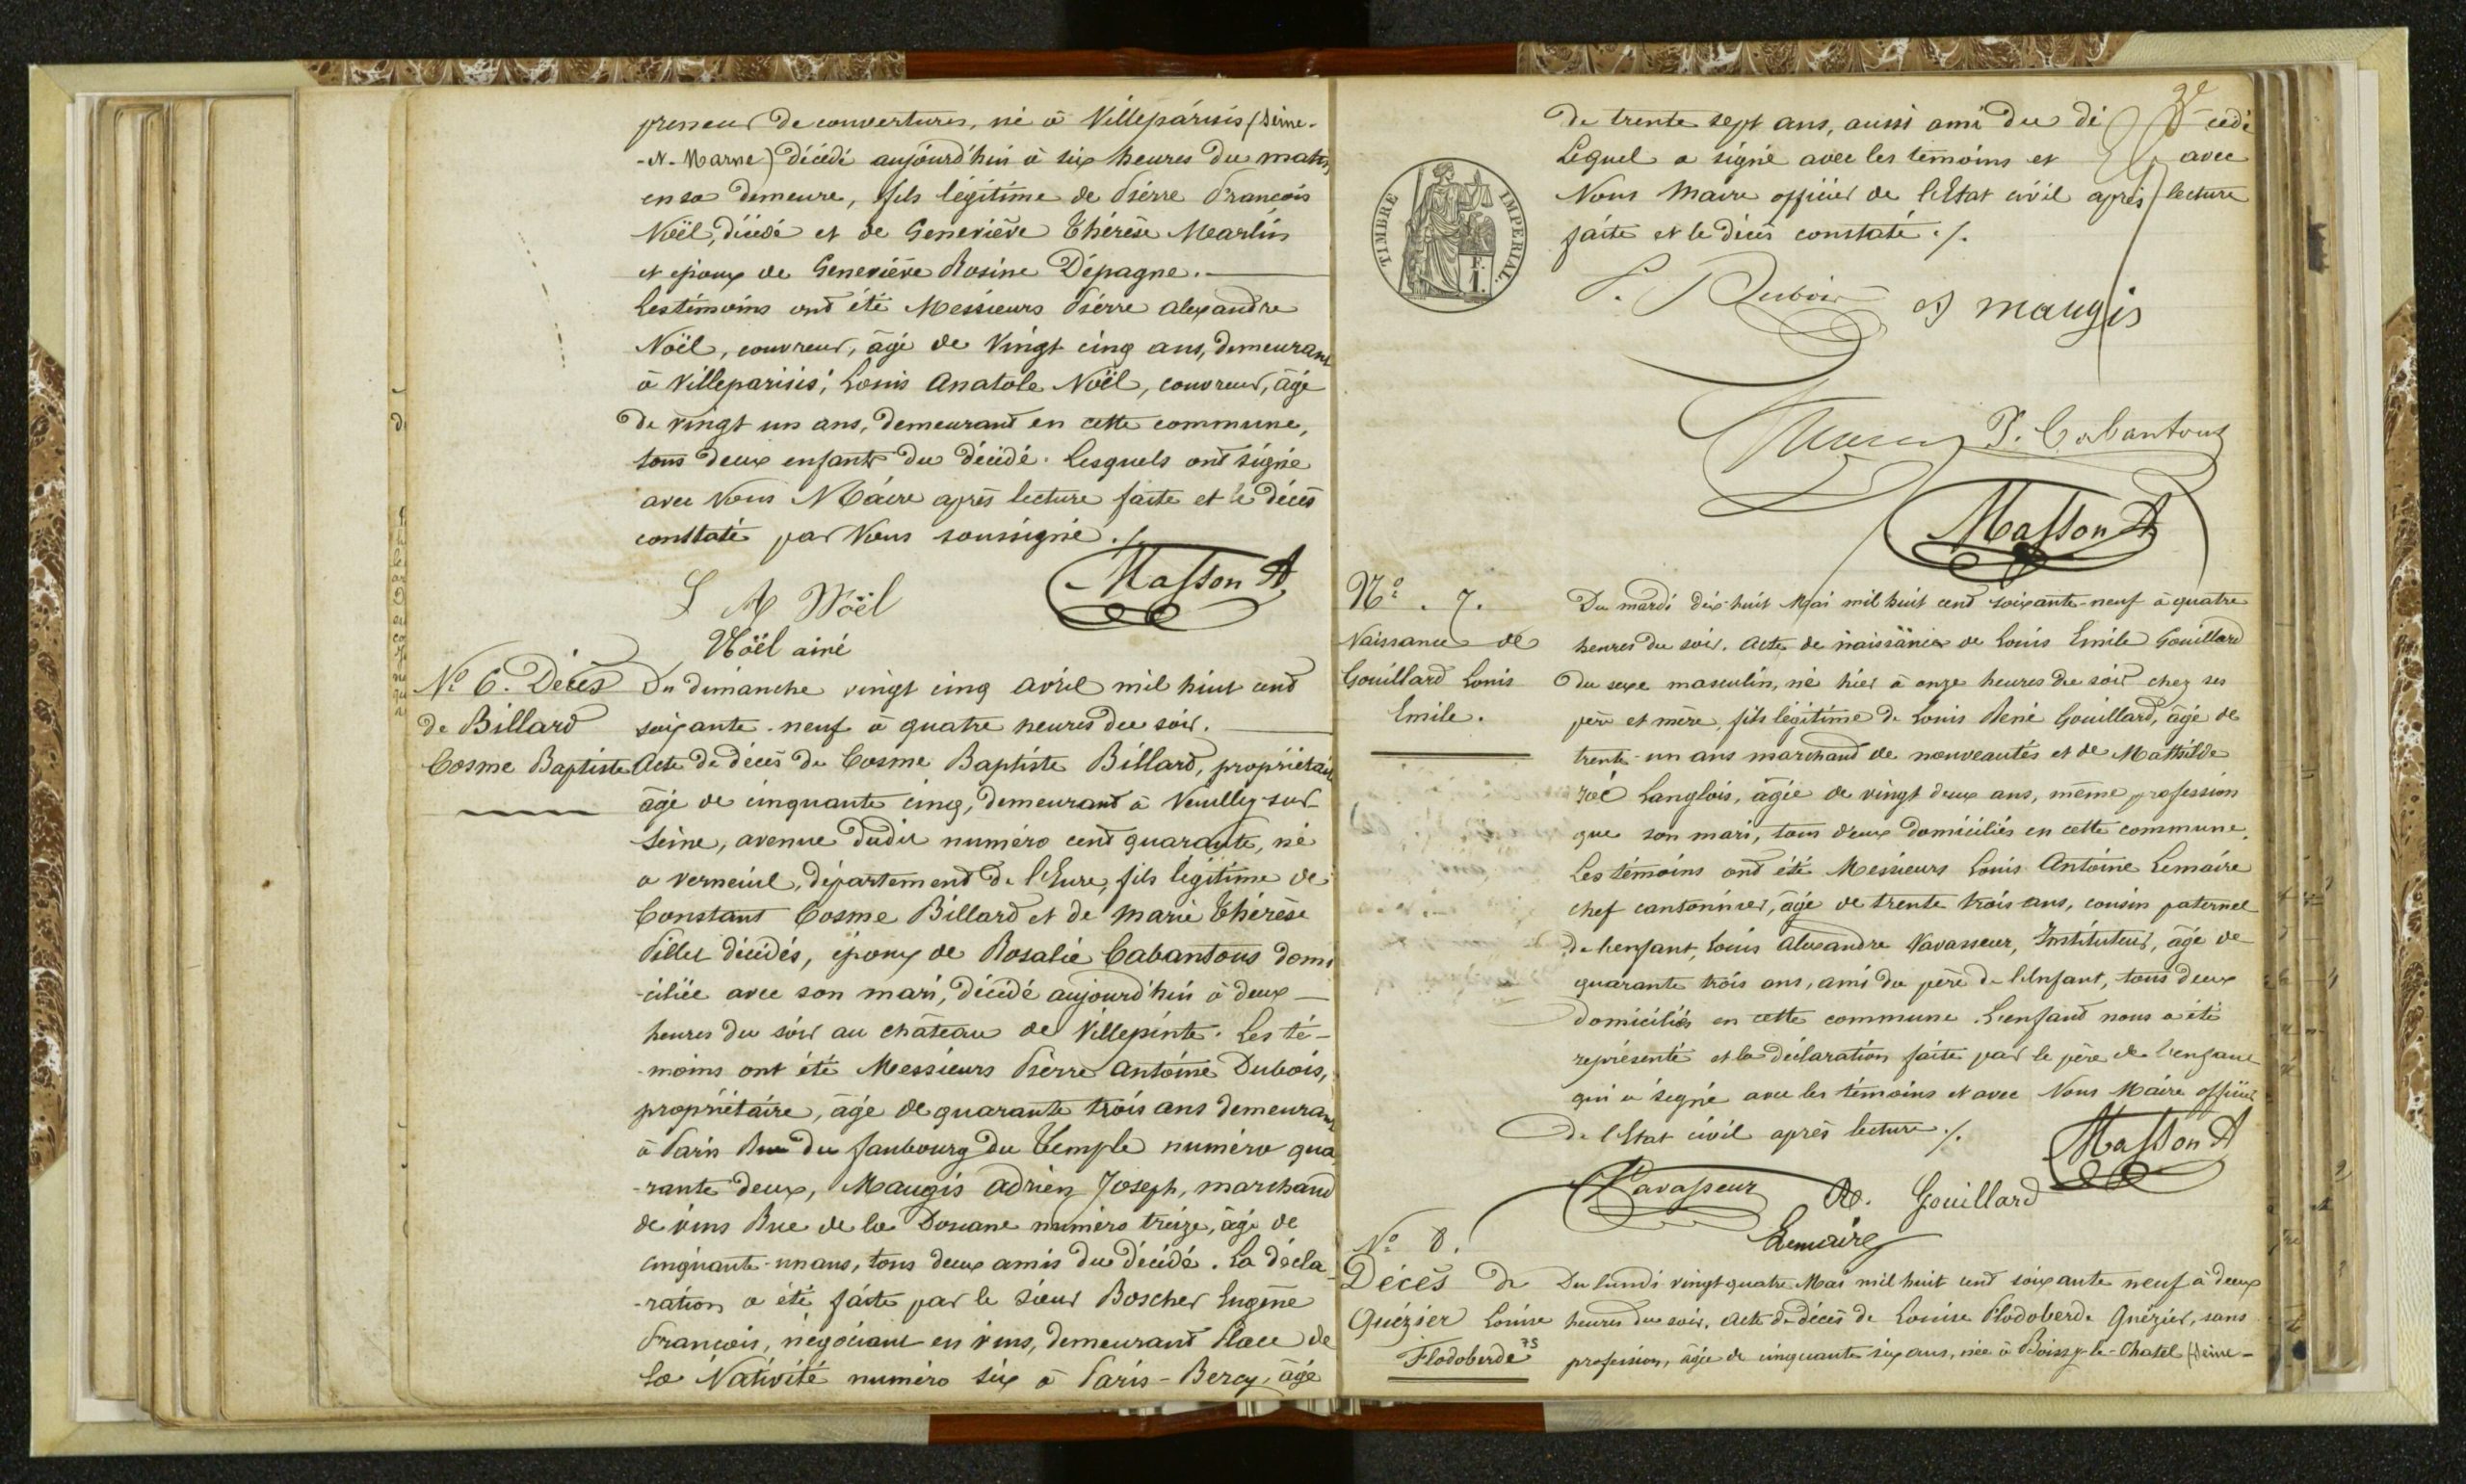 preneur de couvertures, né à Villeparisis (Seine-
-et-Marne) décédé aujourd'hui à six heures du matin
en sa demeure, fils légitime de Pierre François
Noël, décédé et de Geneviève Thérèse Martin
et époux de Geneviève Rosine Dépagne.
Les témoins ont été Messieurs Pierre Alexandre
Noël, couvreur, âgé de vingt cinq ans, demeurant
à Villeparisis; Louis Anatole Noël, couvreur, âgé
de vingt un ans, demeurant en cette commune,
tous deux enfants du décédé. Lesquels ont signé
avec Nous Maire après lecture faite et le décès
constaté par Nous soussigné ./.
L A Noël
Masson A
Noël ainé
No 6. Décès
de Billard
Cosme Baptiste
Du dimanche vingt cinq avril mil huit cent
soixante-neuf à quatre heures du soir.
Acte de décès de Cosme Baptiste Billard, propriétaire
âgé de cinquante cinq, demeurant à Neuilly-sur-
Seine, avenue dudit numéro cent quarante, né
à Verneuil, département de l'Eure, fils légitime de
Constant Cosme Billard et de Marie Thérèse
décédés, époux de Rosalie Cabantous domi
-ciliée avec son mari, décédé aujourd'hui à deux
heures du soir au château de Villepinte. Les té-
-moins ont été Messieurs Pierre Antoine Dubois,
propriétaire, âgé de quarante trois ans demeurant
à Paris Rue du faubourg du Temple numéro qua
-rante deux, Maugis Adrien Joseph, marchand
de vins Rue de la Douane numéro treize, âgé de
cinquante-un ans, tous deux amis du décédé. La décla-
-ration a été faite par le sieur Boscher Eugène
François, négociant en vins, demeurant Place de
la Nativité numéro six à Paris-Bercy, âgé
TIMBRE IMPERIAL.
F.
1.
de trente sept ans, aussi ami du dé cédé
Lequel a signé avec les témoins et avec
Nous Maire officier de l'Etat civil après lecture
faite et le décès constaté ./.
P. Dubois
maugis
P. Cabantous
Masson A
No. 7.
Naissance de
Gouillard Louis
Emile.
Du mardi dix-huit Mai mil huit cent soixante-neuf à quatre
heures du soir. Acte de naissance de Louis Emile Gouillard
du sexe masculin, né hier à onze heures du soir chez ses
père et mère, fils légitime de Louis René Gouillard, âgé de
trente-un ans marchand de nouveautés et de Mathilde
Zoé Langlois, âgée de vingt deux ans, même profession
que son mari, tous deux domiciliés en cette commune.
Les témoins ont été Messieurs Louis Antoine Lemaire
chef cantonnier, âgé de trente trois ans, cousin paternel
de l'enfant, Louis Alexandre Vavasseur, Instituteur, âgé de
quarante trois ans, ami du père de l'Enfant, tous deux
domiciliés en cette commune. L'enfant nous a été
représenté et la déclaration faite par le père de l'enfant
qui a signé avec les témoins et avec Nous Maire officier
de l'Etat civil après lecture ./.
Masson A
Vavasseur
R. Gouillard
Lemaire
No 8.
Décès de
Quézier Louise
Flodoberde
75
Du lundi vingt quatre Mai mil huit cent soixante neuf à deux
heures du soir, acte de décès de Louise Flodoberde Quézier, sans
profession, âgée de cinquante six ans, née à Boissy-le-Chatel (Seine-